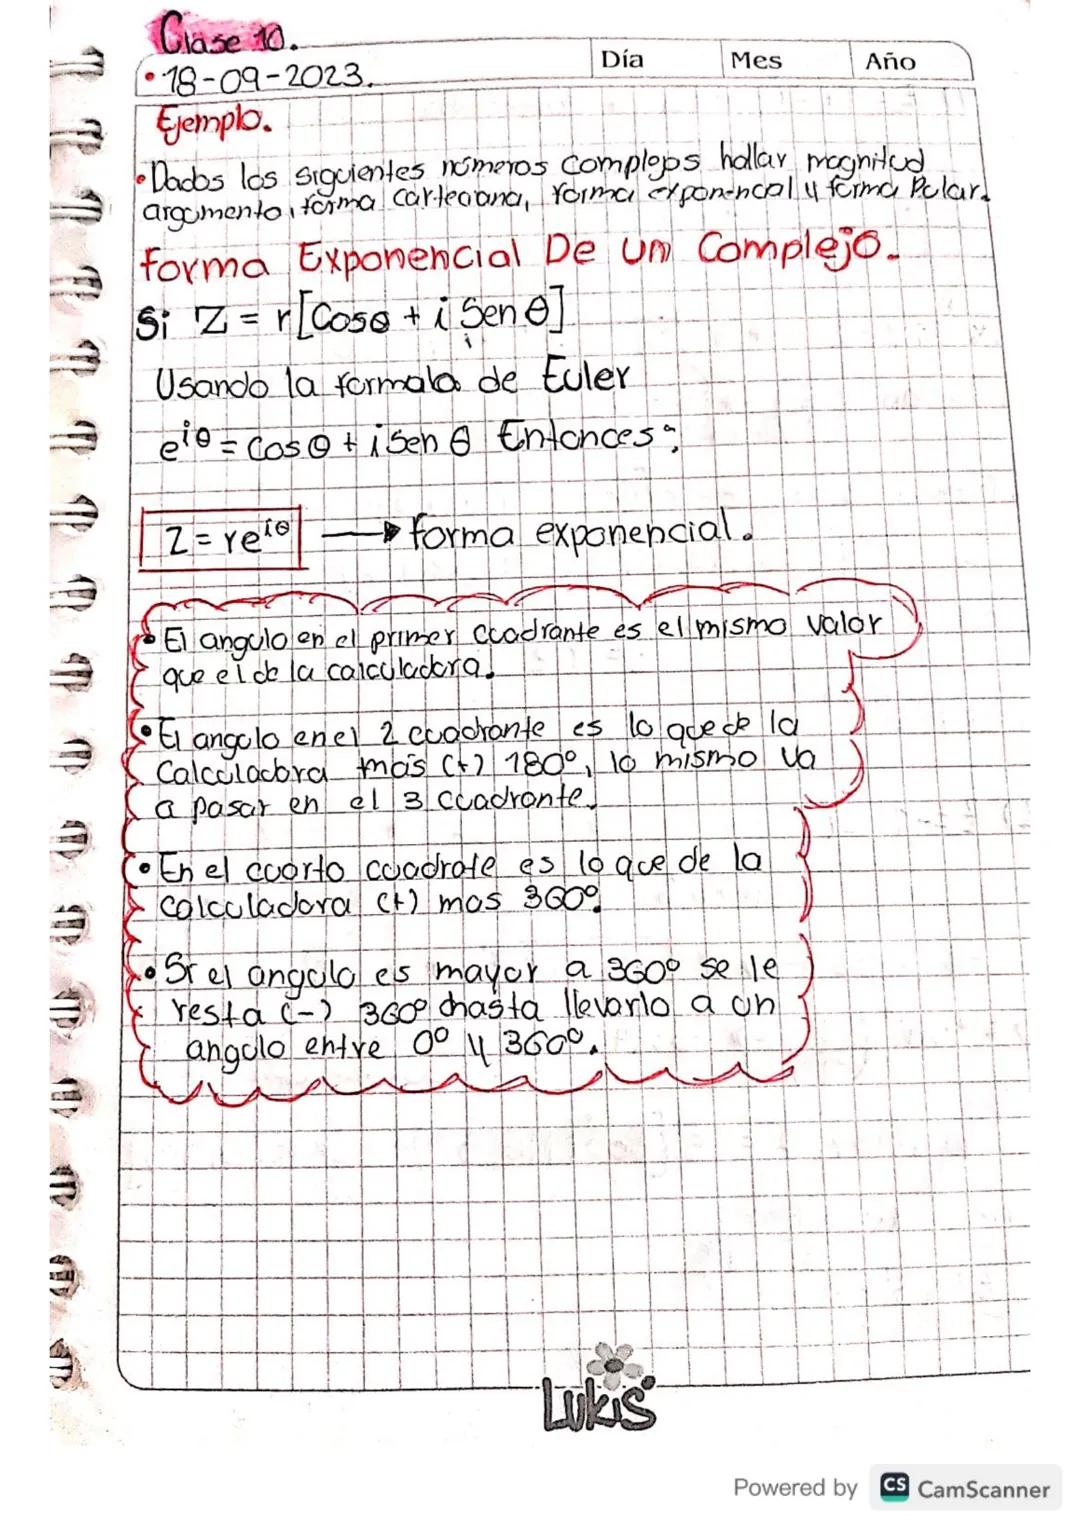 Clase 10.
Día Mes Año
• 18-09-2023.
Ejemplo.
• Dados los siguientes números complejos hallar magnitud
argumento, forma cartesiana, forma exponencial y forma Polar.
forma Exponencial De un Complejo.
Si Z = r[Cosθ + i Sen θ]
Usando la formala de Euler
e^iθ = Cos θ + i Sen θ Entonces;
Z = re^iθ → forma exponencial.
• El angulo en el primer cuadrante es el mismo valor
que el de la calculadora.
• El angulo en el 2 cuadrante es lo que de la
Calculadora más (+) 180°, lo mismo va
a pasar en el 3 cuadrante.
• En el cuarto cuadrate es lo que de la
calculadora (+) mas 360°
• Si el angulo es mayor a 360° se le
resta (-) 360° hasta llevarlo a un
angulo entre 0° y 360°.
Lukis
Powered by CS CamScanner